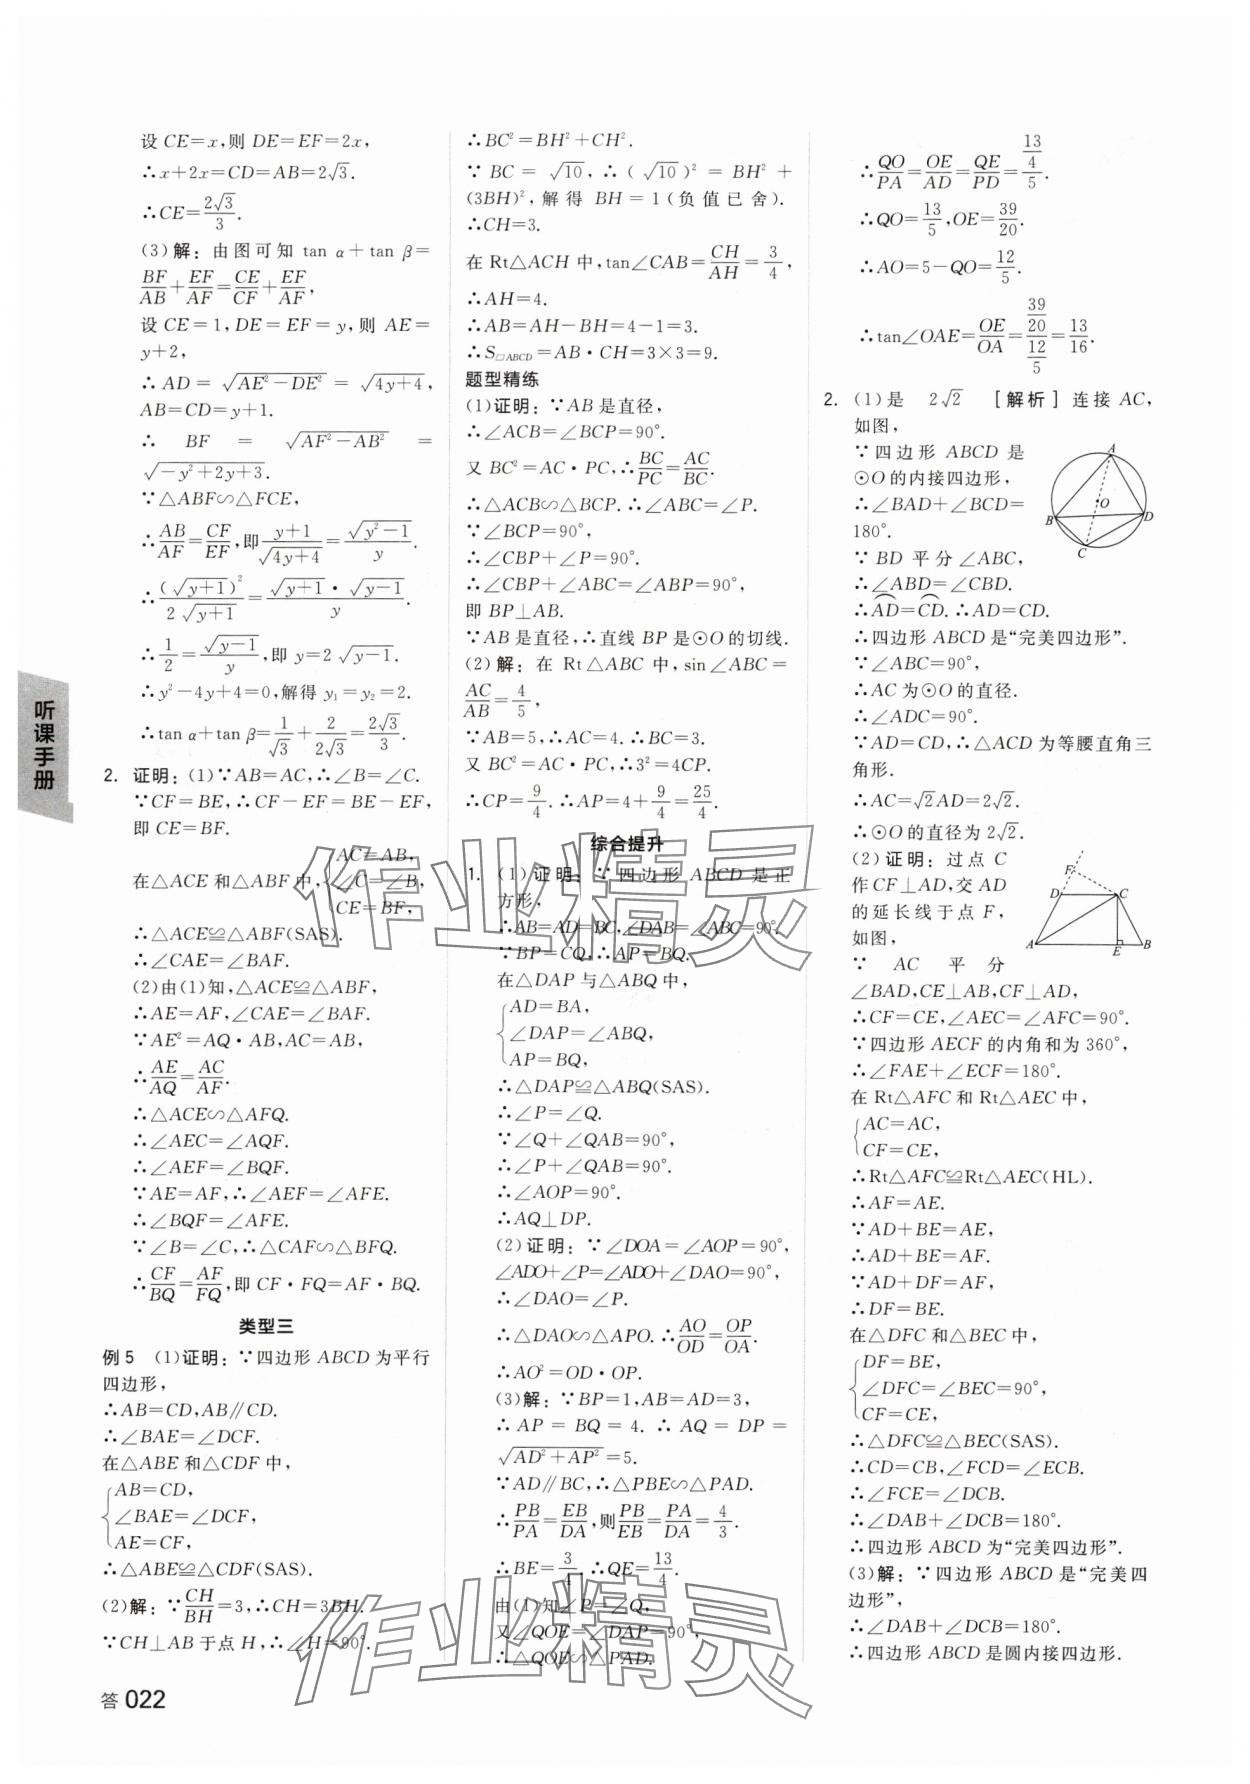 设 CE=x,则 DE=EF=2x,
∴x+2x=CD=AB=2√3.
∴CE=2√3/3.
(3)解:由图可知 tan α+tan β=
BF/AB+EF/AF=CE/CF+EF/AF,
设 CE=1,DE=EF=y,则 AE=
y+2,
∴AD=√(AE²−DE²)=√(4y+4),
AB=CD=y+1.
∴ BF = √(AF²−AB²) =
√(−y²+2y+3).
∵△ABF∽△FCE,
∴AB/AF=CF/EF,即(y+1)/√(4y+4)=√(y²−1)/y.
∴(√(y+1))²/(2√(y+1))=(√(y+1)·√(y−1))/y.
∴1/2=√(y−1)/y,即 y=2√(y−1).
∴y²−4y+4=0,解得 y₁=y₂=2.
∴tan α+tan β=1/√3+2/(2√3)=2√3/3.
2. 证明:(1)∵AB=AC,∴∠B=∠C.
∵CF=BE,∴CF−EF=BE−EF,
即 CE=BF.
在△ACE 和△ABF 中,{AC=AB,
∠C=∠B,
CE=BF,
∴△ACE≌△ABF(SAS).
∴∠CAE=∠BAF.
(2)由(1)知,△ACE≌△ABF,
∴AE=AF,∠CAE=∠BAF.
∵AE²=AQ·AB,AC=AB,
∴AE/AQ=AC/AF.
∴△ACE∽△AFQ.
∴∠AEC=∠AQF.
∴∠AEF=∠BQF.
∵AE=AF,∴∠AEF=∠AFE.
∴∠BQF=∠AFE.
∵∠B=∠C,∴△CAF∽△BFQ.
∴CF/BQ=AF/FQ,即 CF·FQ=AF·BQ.
类型三
例 5 (1)证明:∵四边形 ABCD 为平行
四边形,
∴AB=CD,AB∥CD.
∴∠BAE=∠DCF.
在△ABE 和△CDF 中,
{AB=CD,
∠BAE=∠DCF,
AE=CF,
∴△ABE≌△CDF(SAS).
(2)解:∵CH/BH=3,∴CH=3BH.
∵CH⊥AB 于点 H,∴∠H=90°.
∴BC²=BH²+CH².
∵BC=√10,∴(√10)²=BH²+
(3BH)²,解得 BH=1(负值已舍).
∴CH=3.
在 Rt△ACH 中,tan∠CAB=CH/AH=3/4,
∴AH=4.
∴AB=AH−BH=4−1=3.
∴S▱ABCD=AB·CH=3×3=9.
题型精练
(1)证明:∵AB 是直径,
∴∠ACB=∠BCP=90°.
又 BC²=AC·PC,∴BC/PC=AC/BC.
∴△ACB∽△BCP.∴∠ABC=∠P.
∵∠BCP=90°.
∴∠CBP+∠P=90°.
∴∠CBP+∠ABC=∠ABP=90°,
即 BP⊥AB.
∵AB 是直径,∴直线 BP 是⊙O 的切线.
(2)解:在 Rt△ABC 中,sin∠ABC=
AC/AB=4/5,
∵AB=5,∴AC=4.∴BC=3.
又 BC²=AC·PC,∴3²=4CP.
∴CP=9/4.∴AP=4+9/4=25/4.
综合提升
1. (1)证明:∵四边形 ABCD 是正
方形,
∴AB=AD=BC,∠DAB=∠ABC=90°.
∵BP=CQ,∴AP=BQ.
在△DAP 与△ABQ 中,
{AD=BA,
∠DAP=∠ABQ,
AP=BQ,
∴△DAP≌△ABQ(SAS).
∴∠P=∠Q.
∵∠Q+∠QAB=90°,
∴∠P+∠QAB=90°.
∴∠AOP=90°.
∴AQ⊥DP.
(2)证明:∵∠DOA=∠AOP=90°,
∠ADO+∠P=∠ADO+∠DAO=90°,
∴∠DAO=∠P.
∴△DAO∽△APO.∴AO/OD=OP/OA.
∴AO²=OD·OP.
(3)解:∵BP=1,AB=AD=3,
∴AP=BQ=4.∴AQ=DP=
√(AD²+AP²)=5.
∵AD∥BC,∴△PBE∽△PAD.
∴PB/PA=EB/DA,则PB/EB=PA/DA=4/3.
∴BE=3/4.∴QE=13/4.
由(1)知∠P=∠Q,
又∠QOE=∠DAP=90°,
∴△QOE∽△PAD.
∴QO/PA=OE/AD=QE/PD=(13/4)/5.
∴QO=13/5,OE=39/20.
∴AO=5−QO=12/5.
∴tan∠OAE=OE/OA=(39/20)/(12/5)=13/16.
2. (1)是 2√2 [解析]连接 AC,
如图,
∵四边形 ABCD 是
⊙O 的内接四边形,
∴∠BAD+∠BCD=
180°.
∵BD 平分∠ABC,
∴∠ABD=∠CBD.
∴A͡D=C͡D.∴AD=CD.
∴四边形 ABCD 是“完美四边形”.
∵∠ABC=90°,
∴AC 为⊙O 的直径.
∴∠ADC=90°.
∵AD=CD,∴△ACD 为等腰直角三
角形.
∴AC=√2AD=2√2.
∴⊙O 的直径为 2√2.
(2)证明:过点 C
作 CF⊥AD,交 AD
的延长线于点 F,
如图,
∵ AC 平分
∠BAD,CE⊥AB,CF⊥AD,
∴CF=CE,∠AEC=∠AFC=90°.
∵四边形 AECF 的内角和为 360°,
∴∠FAE+∠ECF=180°.
在 Rt△AFC 和 Rt△AEC 中,
{AC=AC,
CF=CE,
∴Rt△AFC≌Rt△AEC(HL).
∴AF=AE.
∵AD+BE=AE,
∴AD+BE=AF.
∵AD+DF=AF,
∴DF=BE.
在△DFC 和△BEC 中,
{DF=BE,
∠DFC=∠BEC=90°,
CF=CE,
∴△DFC≌△BEC(SAS).
∴CD=CB,∠FCD=∠ECB.
∴∠FCE=∠DCB.
∴∠DAB+∠DCB=180°.
∴四边形 ABCD 为“完美四边形”.
(3)解:∵四边形 ABCD 是“完美四
边形”,
∴∠DAB+∠DCB=180°.
∴四边形 ABCD 是圆内接四边形.
A
O
B
D
C
F
D
C
A
E
B
听课手册
答 022
作业精灵
作业精灵